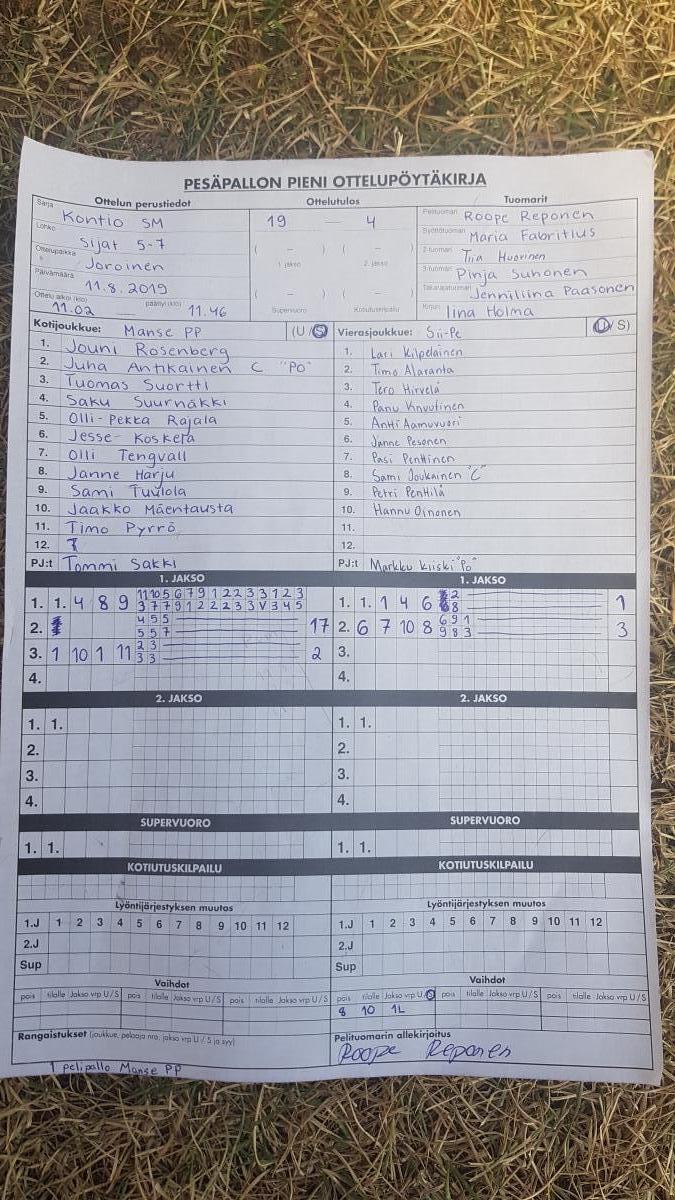 PESÄPALLON PIENI OTTELUPÖYTÄKIRJA
Ottelun perustiedot Ottelutulos Tuomarit
Sarja Kontio SM 19 — 4 Pelituomari Roope Reponen
Lohko Sijat 5-7 Syöttötuomari Maria Fabritius
Ottelupaikka Joroinen ( – ) ( – ) 2-tuomari Tiia Huovinen
1. jakso 2. jakso 3-tuomari Pinja Suhonen
Päivämäärä 11.8.2019 ( – ) ( – ) Takarajatuomari Jenniliina Paasonen
Ottelu alkoi (klo) 11.02 päättyi (klo) 11.46 Supervuoro Kotiutuskilpailu Kirjuri Iina Holma
Kotijoukkue: Manse PP (U/S) Vierasjoukkue: Sii-Pe (U/S)
1. Jouni Rosenberg 1. Lari Kilpeläinen
2. Juha Antikainen C "PO" 2. Timo Alaranta
3. Tuomas Suortti 3. Tero Hirvelä
4. Saku Suurnäkki 4. Panu Knuutinen
5. Olli-Pekka Rajala 5. Antti Aamuvuori
6. Jesse Koskela 6. Janne Pesonen
7. Olli Tengvall 7. Pasi Penttinen
8. Janne Harju 8. Sami Joukainen "C"
9. Sami Tuulola 9. Petri Penttilä
10. Jaakko Mäentausta 10. Hannu Oinonen
11. Timo Pyrrö 11.
12. 12.
PJ:t Tommi Sakki PJ:t Markku Kiiski "Po"
1. JAKSO 1. JAKSO
1. 1. 4 8 9 11 10 5 6 7 9 1 2 2 3 3 1 2 3 1. 1. 1 4 6 2 1
3 7 7 9 1 2 2 2 3 3 V 3 4 5 8
2. 4 5 5 17 2. 6 7 10 8 6 9 1 3
5 5 7 9 8 3
3. 1 10 1 11 2 3 2 3.
3 3
4. 4.
2. JAKSO 2. JAKSO
1. 1. 1. 1.
2. 2.
3. 3.
4. 4.
SUPERVUORO SUPERVUORO
1. 1. 1. 1.
KOTIUTUSKILPAILU KOTIUTUSKILPAILU
Lyöntijärjestyksen muutos Lyöntijärjestyksen muutos
1.J 1 2 3 4 5 6 7 8 9 10 11 12 1.J 1 2 3 4 5 6 7 8 9 10 11 12
2.J 2.J
Sup Sup
Vaihdot Vaihdot
pois tilalle Jakso vrp U/S pois tilalle Jakso vrp U/S pois tilalle Jakso vrp U/S pois tilalle Jakso vrp U/S pois tilalle Jakso vrp U/S pois tilalle Jakso vrp U/S
8 10 1L
Rangaistukset (joukkue, pelaaja nro, jakso vrp U / S ja syy) Pelituomarin allekirjoitus
1 pelipallo Manse PP Roope Reponen